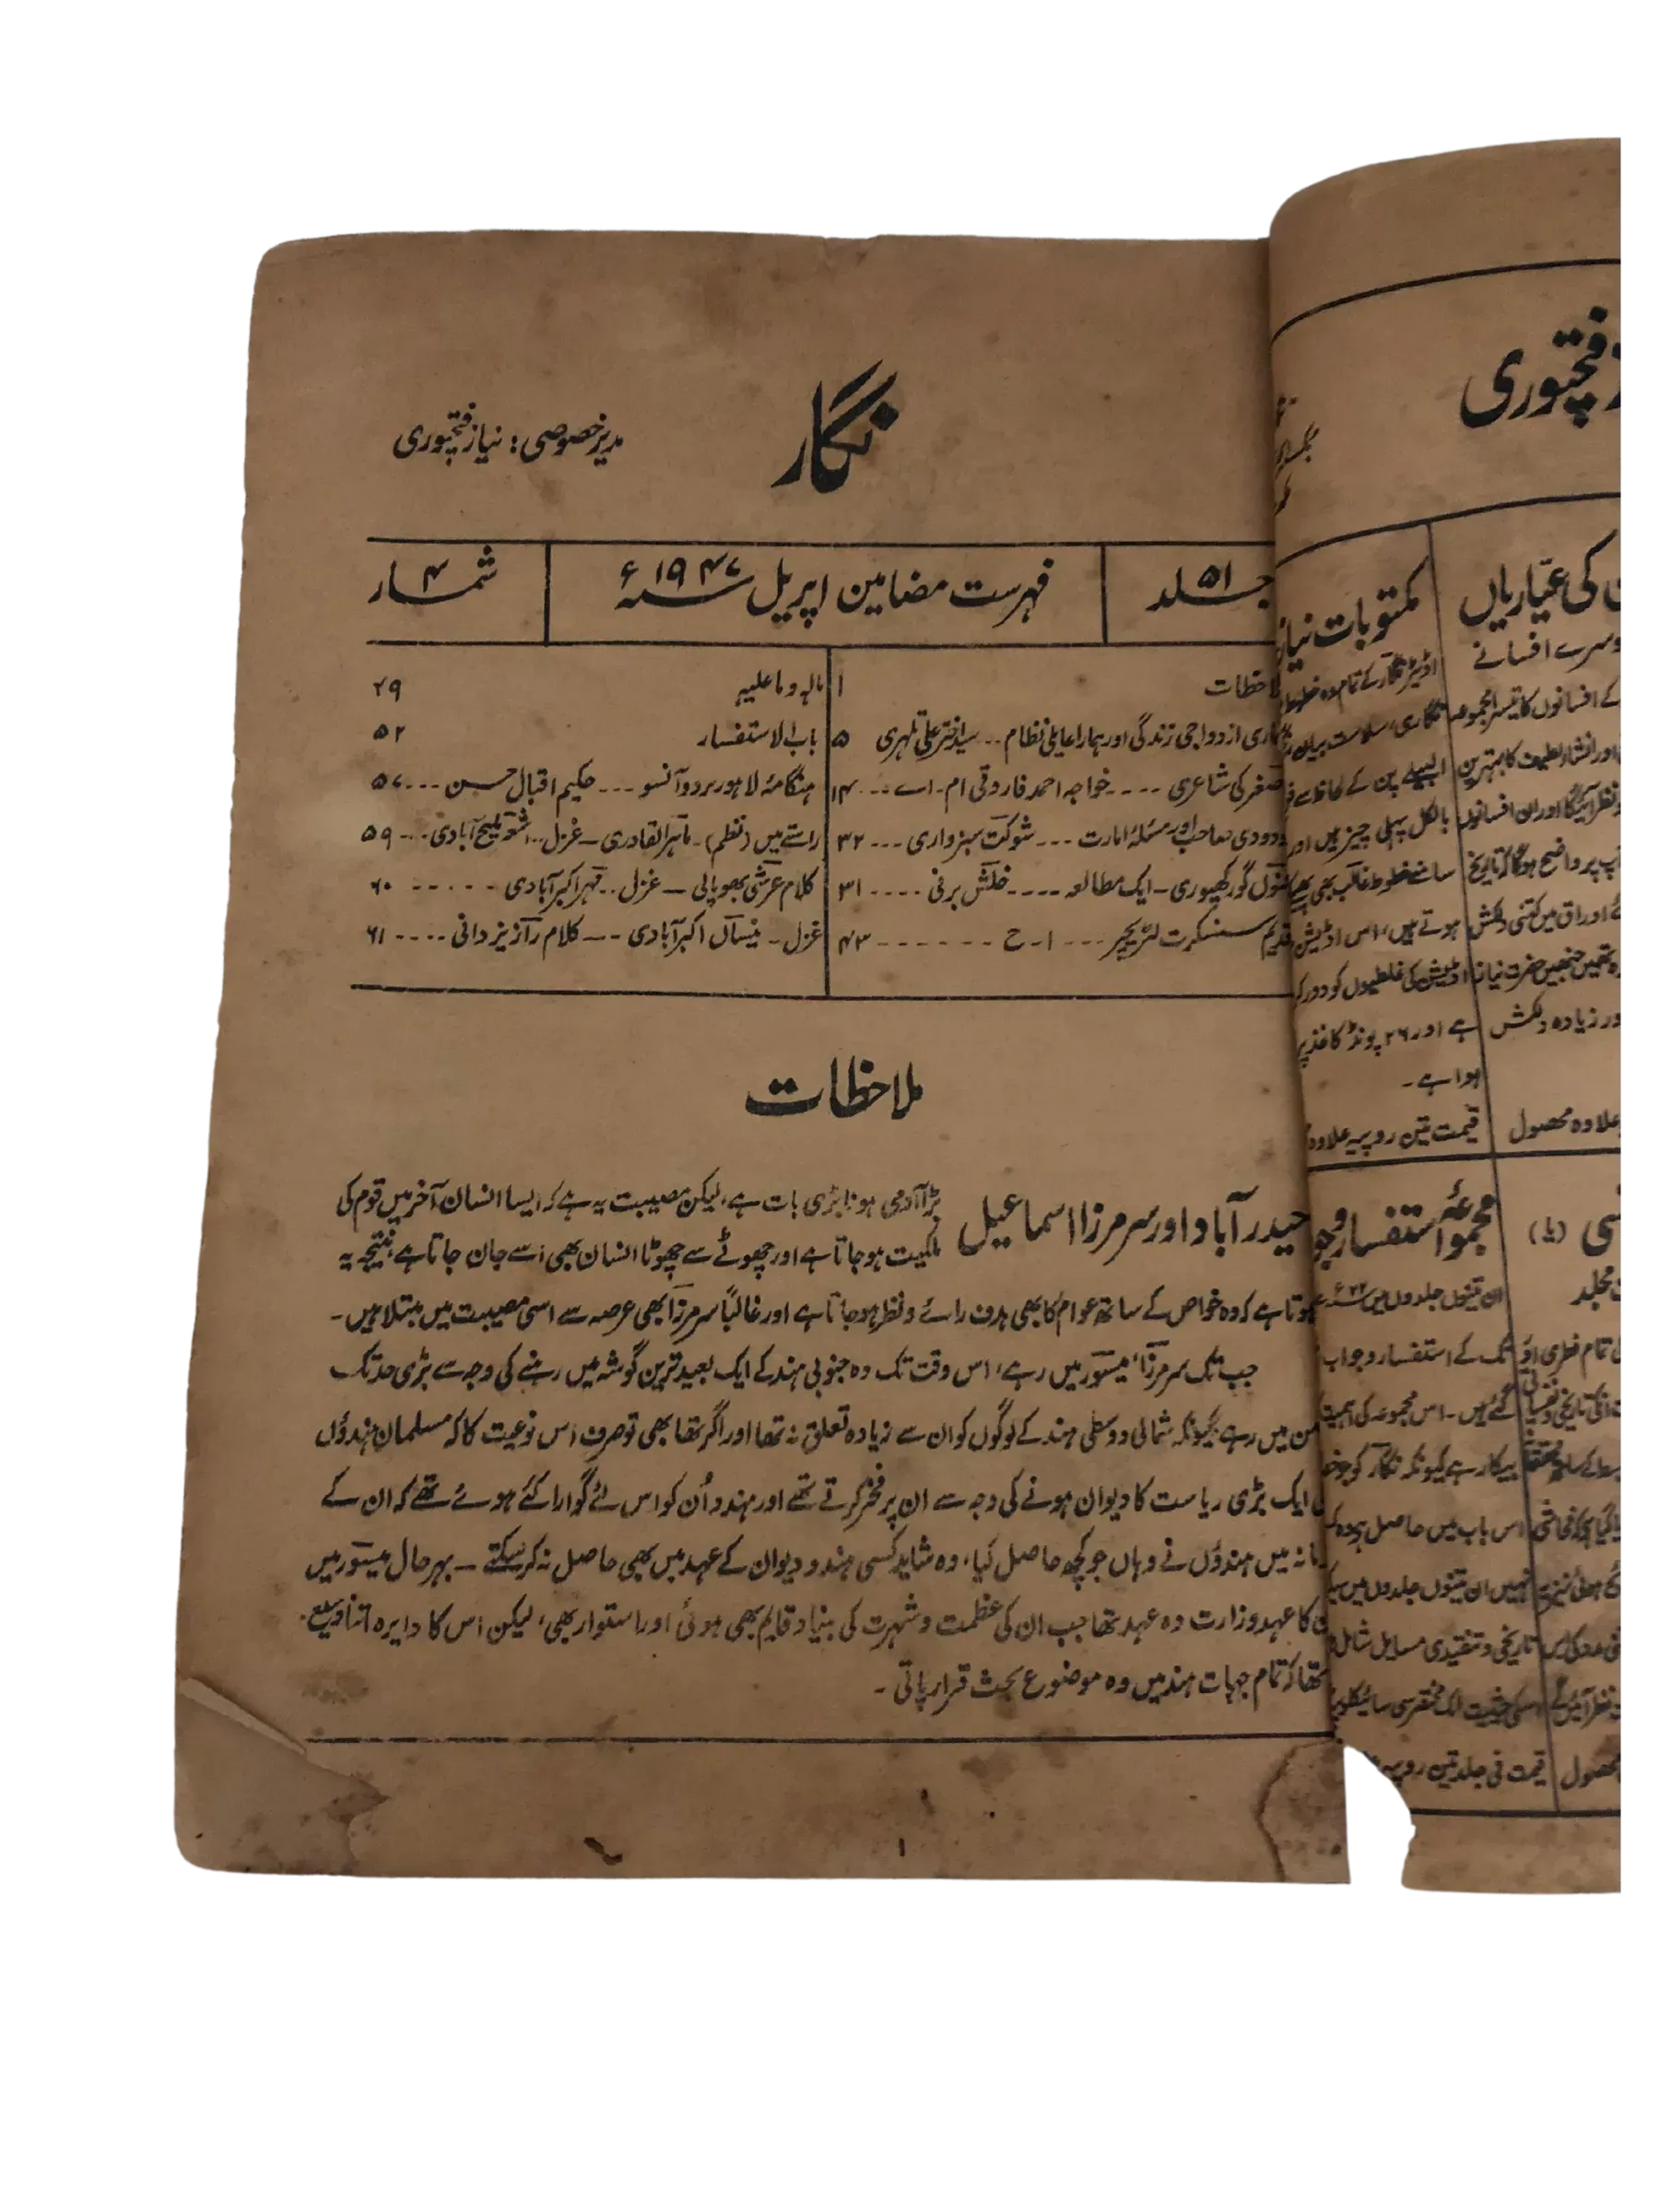 نگار
مدیر خصوصی: نیاز فتحپوری
جلد ۵۱
فہرست مضامین اپریل سنہ ۱۹۴۷ء
شمار ۴
ملاحظات ۱
ہماری ازدواجی زندگی اور ہمارا عایلی نظام .. سید اختر علی تلہری ۵
اصغر کی شاعری ---- خواجہ احمد فاروقی ام۔اے --- ۱۴
مودودی صاحب اور مسئلۂ امارت --- شوکت سبزواری --- ۲۲
مجنوں گورکھپوری - ایک مطالعہ ---- خلش برنی ---- ۳۱
قدیم سنسکرت لٹریچر --- ا - ح ------ ۴۳
مالہ و ما علیہ ۴۹
باب الاستفسار ۵۲
ہنگامۂ لاہور پر دو آنسو --- حکیم اقبال حسن --- ۵۷
راستے میں (نظم) - ماہر القادری - غزل .. ملیح آبادی --- ۵۹
کلام عرشی بھوپالی - غزل .. قہر اکبرآبادی ----- ۶۰
غزل - میساں اکبرآبادی -- کلام راز یزدانی ---- ۶۱
ملاحظات
حیدر آباد اور سر مرزا اسماعیل
بڑا آدمی ہونا بڑی بات ہے، لیکن مصیبت یہ ہے کہ ایسا انسان آخر میں قوم کی
ملکیت ہو جاتا ہے اور چھوٹے سے چھوٹا انسان بھی اسے جان جاتا ہے، نتیجہ یہ
ہوتا ہے کہ وہ خواص کے ساتھ عوام کا بھی ہدف رائے و نظر ہو جاتا ہے اور غالباً سر مرزا بھی عرصہ سے اسی مصیبت میں مبتلا ہیں۔
جب تک سر مرزا، میسور میں رہے، اس وقت تک وہ جنوبی ہند کے ایک بعید ترین گوشہ میں رہنے کی وجہ سے بڑی حد تک
من میں رہے کیونکہ شمالی و وسطی ہند کے لوگوں کو ان سے زیادہ تعلق نہ تھا اور اگر تھا بھی تو صرف اس نوعیت کا کہ مسلمان ہندوؤں
ایک بڑی ریاست کا دیوان ہونے کی وجہ سے ان پر فخر کرتے تھے اور ہندو اُن کو اس لئے گوارا کئے ہوئے تھے کہ ان کے
زمانہ میں ہندوؤں نے وہاں جو کچھ حاصل کیا، وہ شاید کسی ہندو دیوان کے عہد میں بھی حاصل نہ کر سکتے - بہرحال میسور میں
کا عہد وزارت وہ عہد تھا جب ان کی عظمت و شہرت کی بنیاد قایم بھی ہوئی اور استوار بھی، لیکن اس کا دایرہ اتنا وسیع
تھا کہ تمام جہات ہند میں وہ موضوع بحث قرار پاتی۔
۱
فتحپوری
کی عیاریاں
دوسرے افسانے
کے افسانوں کا تیسرا مجموعہ
اور انشاء لطیف کا بہترین
نظر آئیگا اور ان افسانوں
پر واضح ہوگا کہ تاریخ
اوراق میں کتنی دلکش
تھیں جنھیں حضرت نیاز
اور زیادہ دلکش
علاوہ محصول
مکتوبات نیاز
اڈیٹر نگار کے تمام وہ خطوط
نگاری، سلاست بیان
البیلے پن کے لحاظ سے
بالکل پہلی چیز ہیں اور
سامنے خطوط غالب بھی پھیکے
ہوتے ہیں، اس اڈیشن
اڈیشن کی غلطیوں کو دور کر
ہے اور ۲۶ پونڈ کاغذ پر
ہوا ہے۔
قیمت تین روپیہ علاوہ
مجموعۂ استفسار و جو
ان تینوں جلدوں میں
تک کے استفسار و جواب
گئے ہیں۔ اس مجموعہ کی اہمیت
بیکار ہے کیونکہ نگار کو جو
اس باب میں حاصل ہے وہ
نہیں ان تینوں جلدوں میں
تاریخی و تنقیدی مسایل شامل
اسکی حیثیت ایک مختصر سی سائیکلوپیڈیا
قیمت فی جلد تین روپیہ
مجلد
تمام فطری
محصول